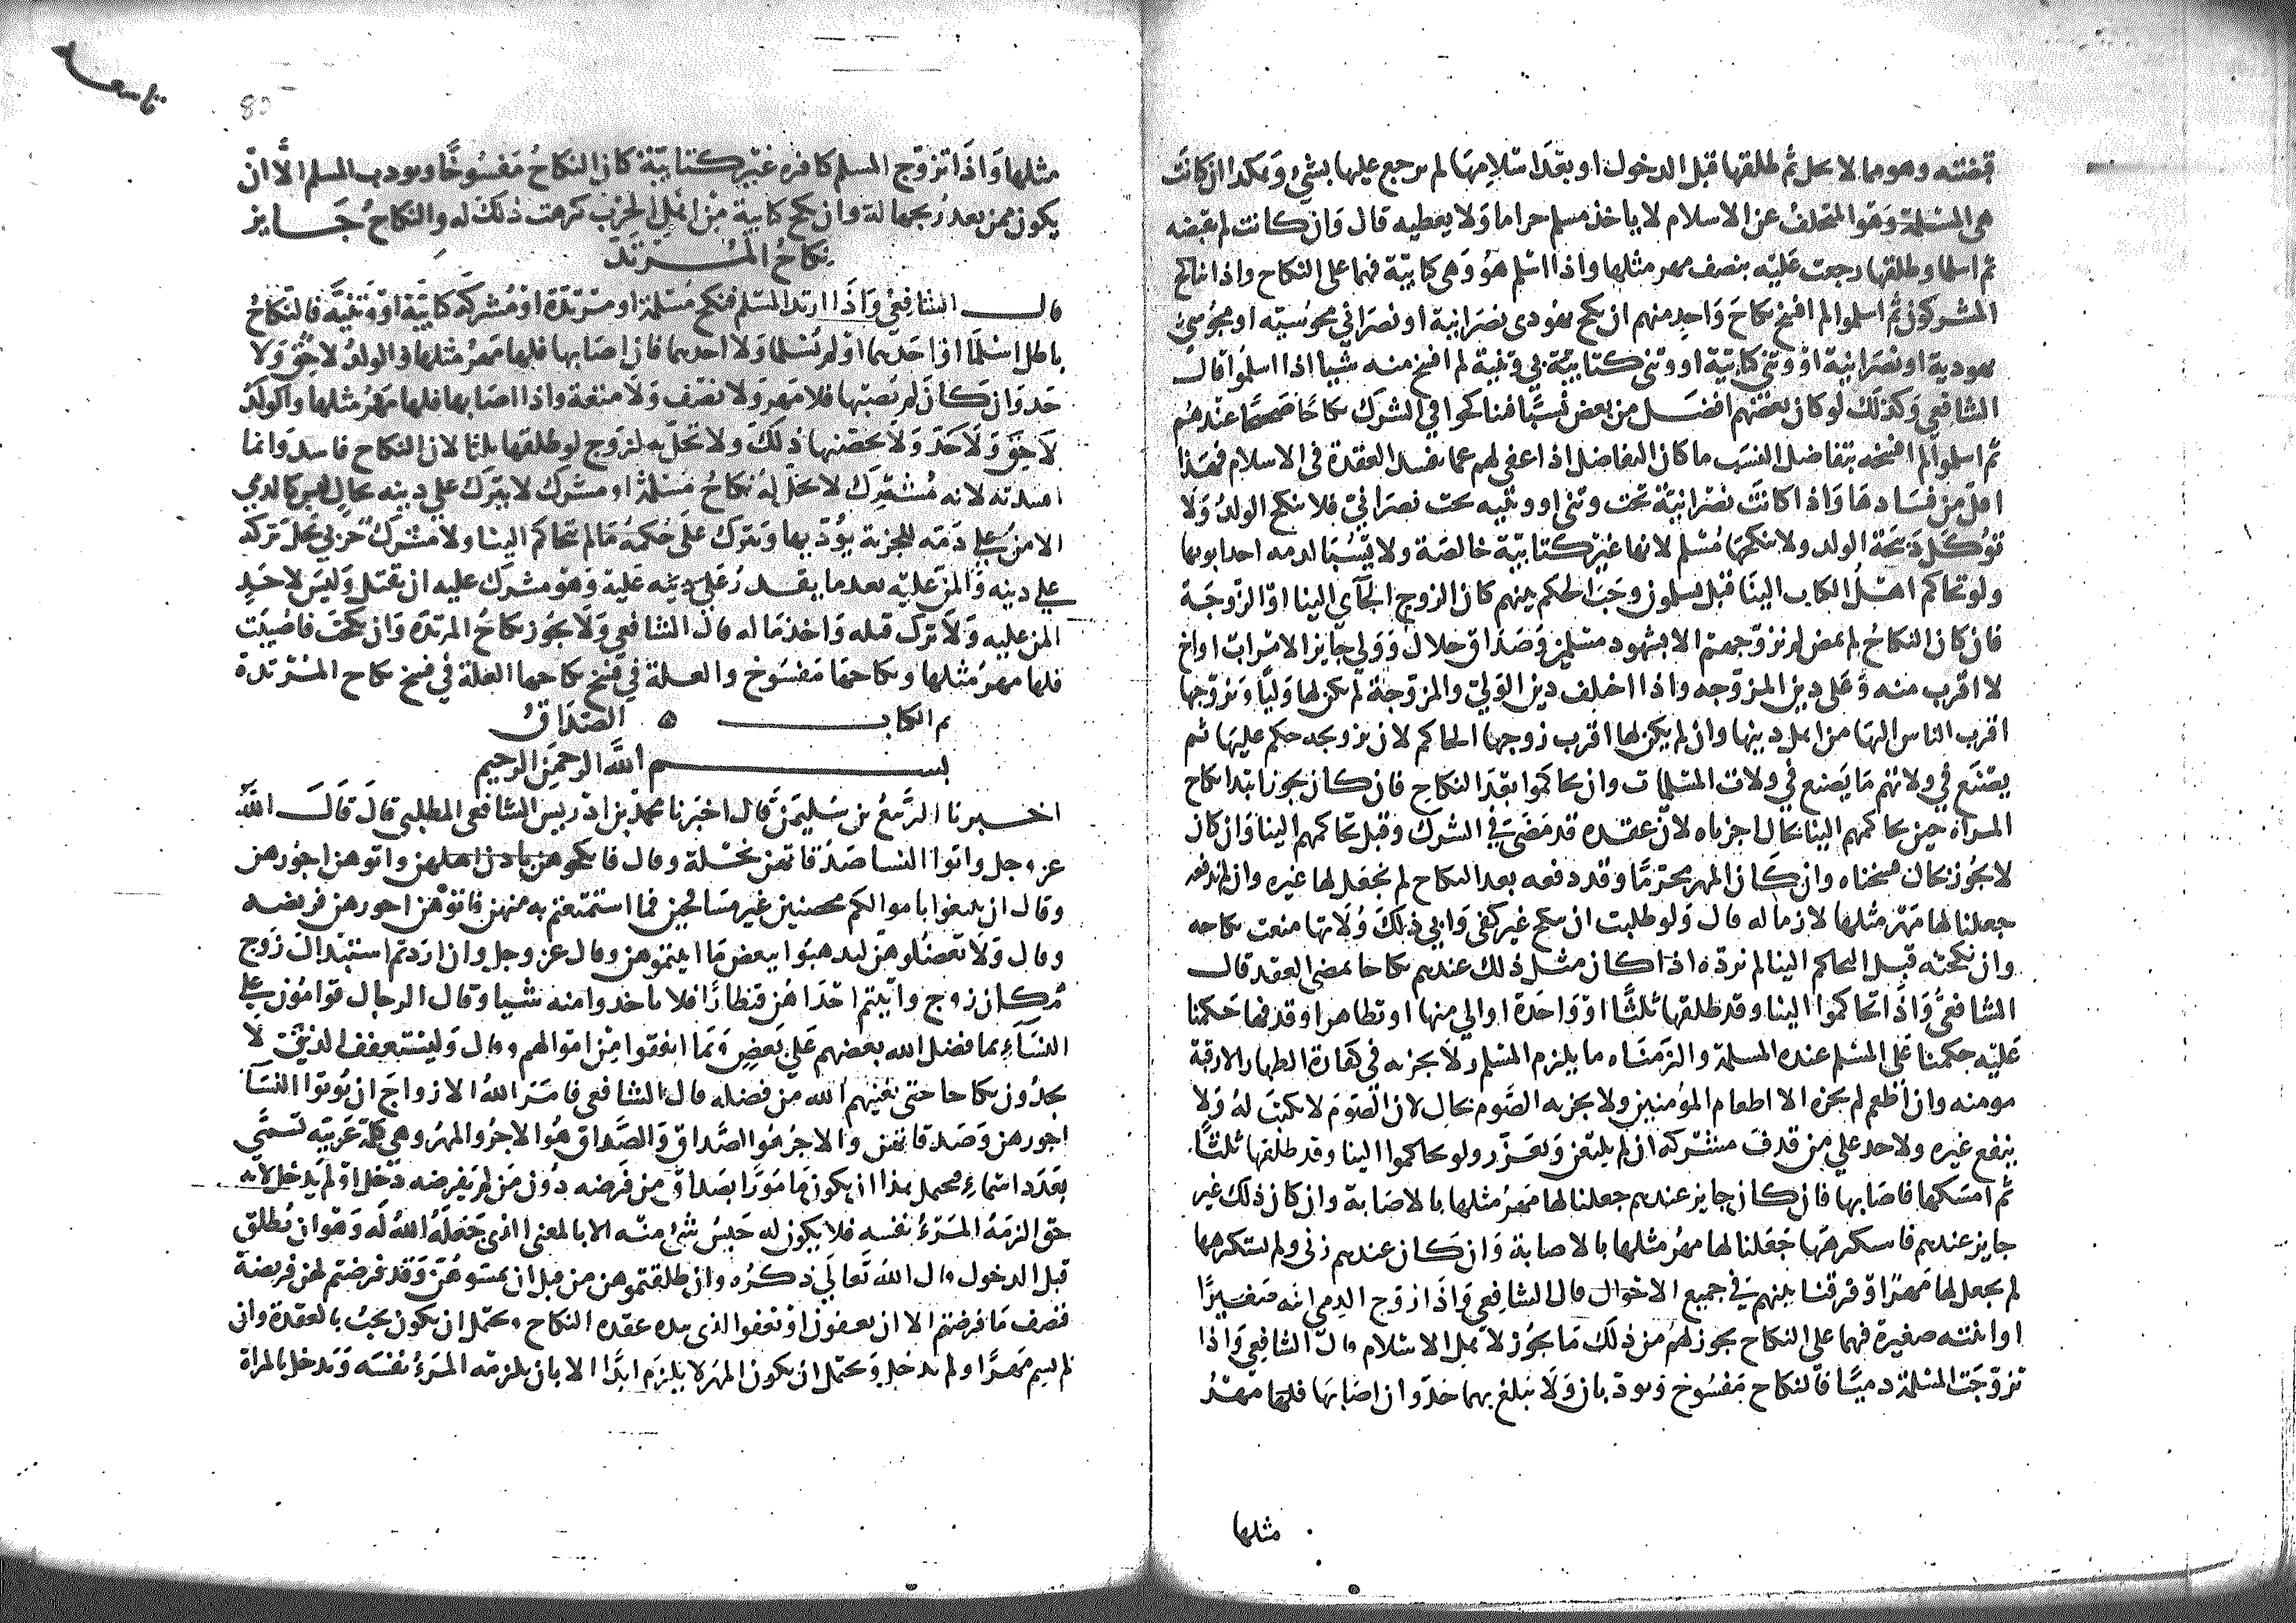 قبضته وهو مما لا يحل ثم طلقها قبل الدخول او بعد اسلامهما لم يرجع عليها بشيء وهكذا ان كانت
هي المسلمة وهو المتخلف عن الاسلام لا ياخذ مسلم حراما ولا يعطيه قال وان كانت لم تقبضه
ثم اسلما وطلقها رجعت عليه بنصف مهر مثلها واذا اسلم هو وهي كتابية فهما على النكاح واذا تناكح
المشركون ثم اسلموا لم افسخ نكاح واحد منهم ان نكح يهودي نصرانية او نصراني مجوسية او مجوسي
يهودية او نصرانية او وثني كتابية او وثني كتابية وثنية لم افسخ منه شيا اذا اسلموا قال
الشافعي وكذلك لو كان بعضهم افضل من بعض نسبا فتناكحوا في الشرك نكاحا صحيحا عندهم
ثم اسلموا لم افسخه بتفاضل النسب ما كان التفاضل اذا عفى لهم عما يفسد العقدة في الاسلام فهذا
اقل من فسادها واذا كانت نصرانية تحت وثني او وثنيه تحت نصراني فلا ينكح الولد ولا
توكل ذبيحة الولد ولا ينكحها مسلم لانها غير كتابية خالصة ولا تسبا لذمه احد ابويها
ولو تحاكم اهل الكتاب الينا قبل يسلمون وجب الحكم بينهم كان الزوج الجاي الينا او الزوجة
فان كان النكاح لم يمض لم نزوجهم الا بشهود مسلمين وصداق حلال وولي جايز الامر اب او اخ
لا اقرب منه وعلى دين المزوجه واذا اختلف دين الولي والمزوجة لم يكن لها وليا ويزوجها
اقرب الناس اليها من اهل دينها وان لم يكن لها اقرب زوجها الحاكم لان تزويجه حكم عليها ثم
يصنع في ولاتهم ما يصنع في ولاة المسلمات وان تحاكموا بعد النكاح فان كان يجوز ابتدا نكاح
المراة حين تحاكمهم الينا بحال اجزناه لان عقده قد مضى في الشرك وقبل تحاكمهم الينا وان كان
لا يجوز بحال فسخناه وان كان المهر محرما وقد دفعه بعد النكاح لم نجعل لها غيره وان لم يدفعه
جعلنا لها مهر مثلها لازما له قال ولو طلبت ان تنكح غير كفي وابى ذلك ولاتها منعت نكاحه
وان نكحته قبل التحاكم الينا لم نرده اذا كان مثل ذلك عندهم نكاحا لمضي العقد قال
الشافعي واذا تحاكموا الينا وقد طلقها ثلثا او واحدة او الى منها او تظاهر او قذفها حكمنا
عليه حكمنا على المسلم عنده المسلمة والزمناه ما يلزم المسلم ولا يجزيه في كفارة الظهار الا رقبة
مومنه وان اطعم لم يجزه الا اطعام المؤمنين ولا يجزيه الصوم بحال لان الصوم لا يكتب له ولا
ينفع غيره ولا حد على من قذف مشركه ان لم يلتعن ويعزر ولو تحاكموا الينا وقد طلقها ثلثا
ثم امسكها فاصابها فان كان جايز عندهم جعلنا لها مهر مثلها بالاصابة وان كان ذلك غير
جايز عندهم فاستكرهها جعلنا لها مهر مثلها بالاصابة وان كان عندهم زنى ولم يستكرهها
لم يجعل لها مهرا وفرقنا بينهم في جميع الاحوال قال الشافعي واذا زوج الذمي ابنه صغيرا
او ابنته صغيرة فهما على النكاح يجوز لهم من ذلك ما يجوز لاهل الاسلام قال الشافعي واذا
تزوجت المسلمة ذميا فالنكاح مفسوخ ويودبان ولا يبلغ بهما حد وان اصابها فلها مهر
مثلها
80
مثلها واذا تزوج المسلم كافره غير كتابية كان النكاح مفسوخا ويودب المسلم الا ان
يكون ممن يعذر بجهالة وان نكح كتابية من اهل الحرب كرهت ذلك له والنكاح جايز
نكاح المرتد
قال الشافعي واذا ارتد المسلم فنكح مسلمة او مرتدة او مشركه كتابية او وثنية فالنكاح
باطل اسلما او احدهما او لم يسلما ولا احدهما فان اصابها فلها مهر مثلها والولد لاحق ولا
حد وان كان لم يصبها فلا مهر ولا نصف ولا متعة واذا اصابها فلها مهر مثلها والولد
لاحق ولا حد ولا يحصنها ذلك ولا تحل به لزوج لو طلقها ثلثا لان النكاح فاسد وانما
افسدته لانه مشرك لا يحل له نكاح مسلمة او مشرك لا يترك على دينه بحال ليس كالذمي
الامن على ذمه للجزية يؤديها ويترك على حكمه ما لم يتحاكم الينا ولا مشرك حربي يحل تركه
على دينه والمن عليه بعد ما يقدر على دينه عليه وهو مشرك عليه ان يقتل وليس لاحد
المن عليه ولا ترك قتله واخذ ماله قال الشافعي ولا يجوز نكاح المرتدة وان نكحت فاصيبت
فلها مهر مثلها ونكاحها مفسوخ والعلة في فسخ نكاحها العلة في فسخ نكاح المرتد
تم الكتاب ه الصداق
بسم الله الرحمن الرحيم
اخبرنا الربيع بن سليمن قال اخبرنا محمد بن ادريس الشافعي المطلبي قال قال الله
عز وجل واتوا النسا صدقاتهن نحلة وقال فانكحوهن باذن اهلهن واتوهن اجورهن
وقال ان تبتغوا باموالكم محصنين غير مسافحين فما استمتعتم به منهن فاتوهن اجورهن فريضه
وقال ولا تعضلوهن لتذهبوا ببعض ما اتيتموهن وقال عز وجل وان اردتم استبدال زوج
مكان زوج واتيتم احداهن قنطارا فلا تاخذوا منه شيا وقال الرجال قوامون على
النساء بما فضل الله بعضهم على بعض وبما انفقوا من اموالهم وقال وليستعفف الذين لا
يجدون نكاحا حتى يغنيهم الله من فضله قال الشافعي فامر الله الازواج ان يوتوا النسا
اجورهن وصدقاتهن والاجر هو الصداق والصداق هو الاجر والمهر وهي كلمة عربيه تسمى
بعدد اسماء فيحتمل هذا ان يكون مامورا بصداق من فرضه دون من لم يفرضه دخل او لم يدخل لانه
حق الزمه المرء نفسه فلا يكون له حبس شي منه الا بالمعنى الذي جعله الله له وهو ان يطلق
قبل الدخول قال الله تعالى ذكره وان طلقتموهن من قبل ان تمسوهن وقد فرضتم لهن فريضة
فنصف ما فرضتم الا ان يعفون او يعفوا الذي بيده عقده النكاح ويحتمل ان يكون يجب بالعقدة وان
لم يسم مهرا ولم يدخل ويحتمل ان يكون المهر لا يلزم ابدا الا بان يلزمه المرء نفسه ويدخل بالمراة